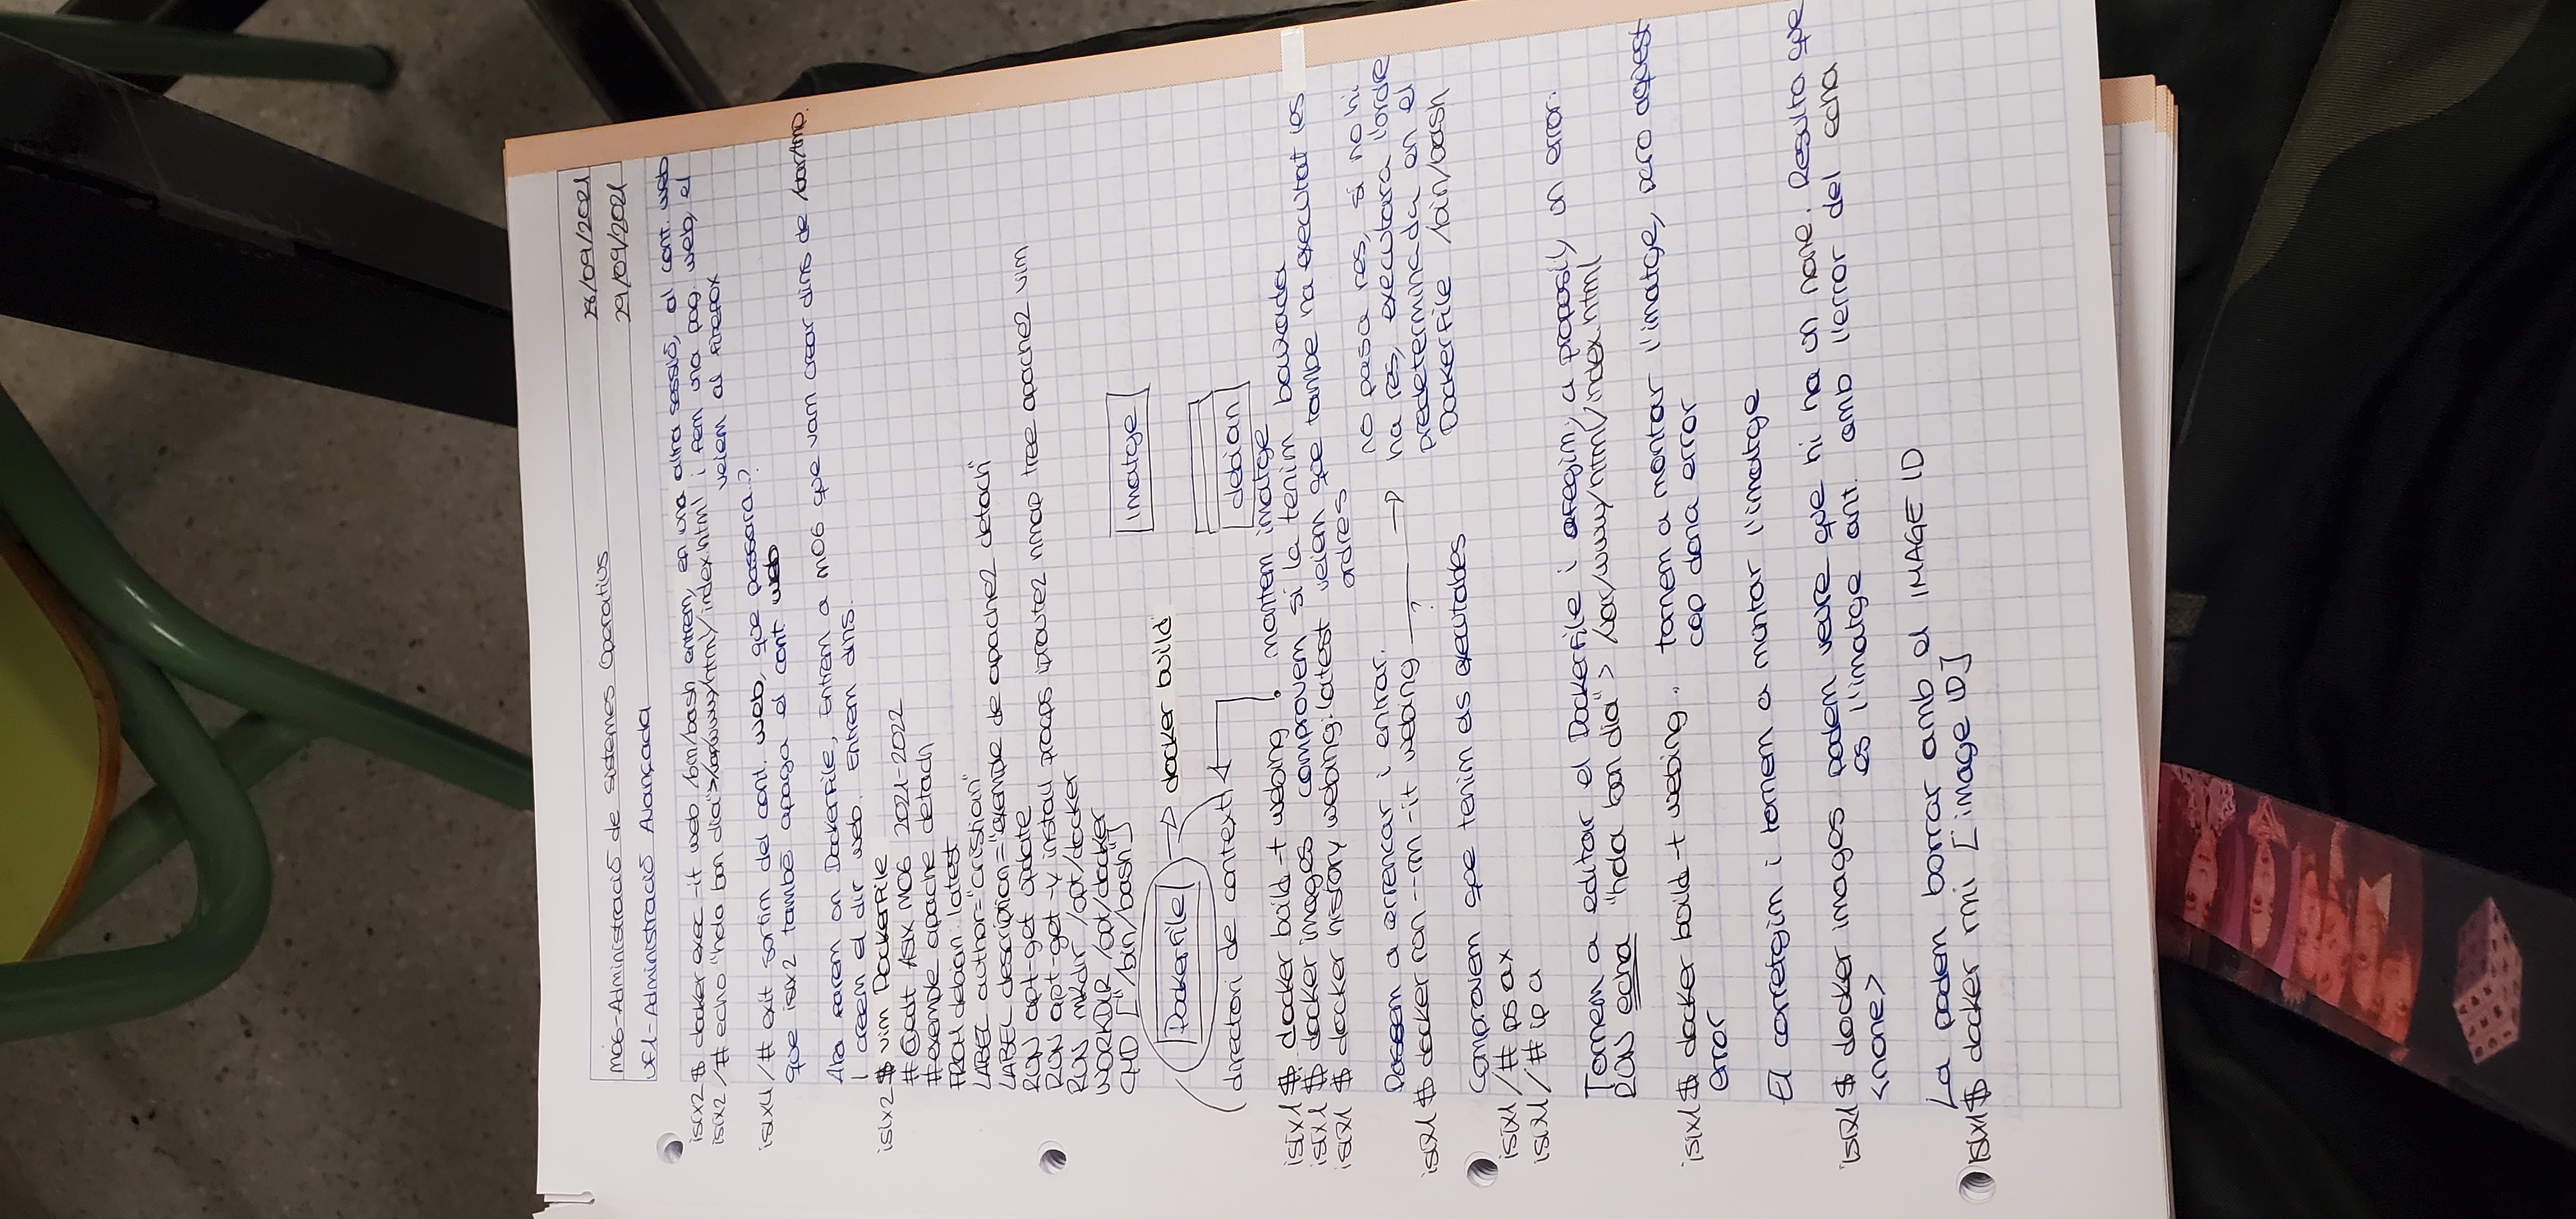 M06-Administració de Sistemes Operatius
28/09/2021
UF1-Administració Avançada
29/09/2021
isix2 $ docker exec -it web /bin/bash entrem, en una altra sessió, al cont. web
isix2 /# echo "hola bon dia">/var/www/html/index.html i fem una pag. web, el
veiem al firefox
isix4 /# exit sortim del cont. web, que passara..?
que isix2 també apaga el cont. web
Ara farem un Dockerfile, Entrem a M06 que vam crear dins de /var/tmp.
I creem el dir web. Entrem dins.
isix2 $ vim Dockerfile
#@edt ASIX M06 2021-2022
#exemple apache detach
FROM debian:latest
LABEL author="Cristian"
LABEL description="exemple de apache2 detach"
RUN apt-get update
RUN apt-get -y install procps iproute2 nmap tree apache2 vim
RUN mkdir /opt/docker
WORKDIR /opt/docker
CMD ["/bin/bash"]
imatge
Dockerfile → docker build
directori de context
debian
isix1 $ docker build -t webing . mantem imatge
isix1 $ docker images comprovem si la tenim baixada
isix1 $ docker history webing:latest veiem que tambe ha executat les
ordres
Passem a arrencar i entrar.
isix1 $ docker run --rm -it webing ? →
no pasa res, si no hi
ha res, executara l'ordre
predeterminada en el
Dockerfile /bin/bash
Comprovem que tenim els executables
isix1 /# ps ax
isix1 /# ip a
Tornem a editar el Dockerfile i afegim, a proposit, un error.
RUN echa "hola bon dia" > /var/www/html/index.html
isix1 $ docker build -t webing . tornem a montar l'imatge, pero aquest
error
cop dona error
El corretgim i tornem a muntar l'imatge
isix1 $ docker images podem veure que hi ha un none. Resulta que
<none>
es l'imatge ant. amb l'error del echa
La podem borrar amb el IMAGE ID
isix1 $ docker rmi [image ID]